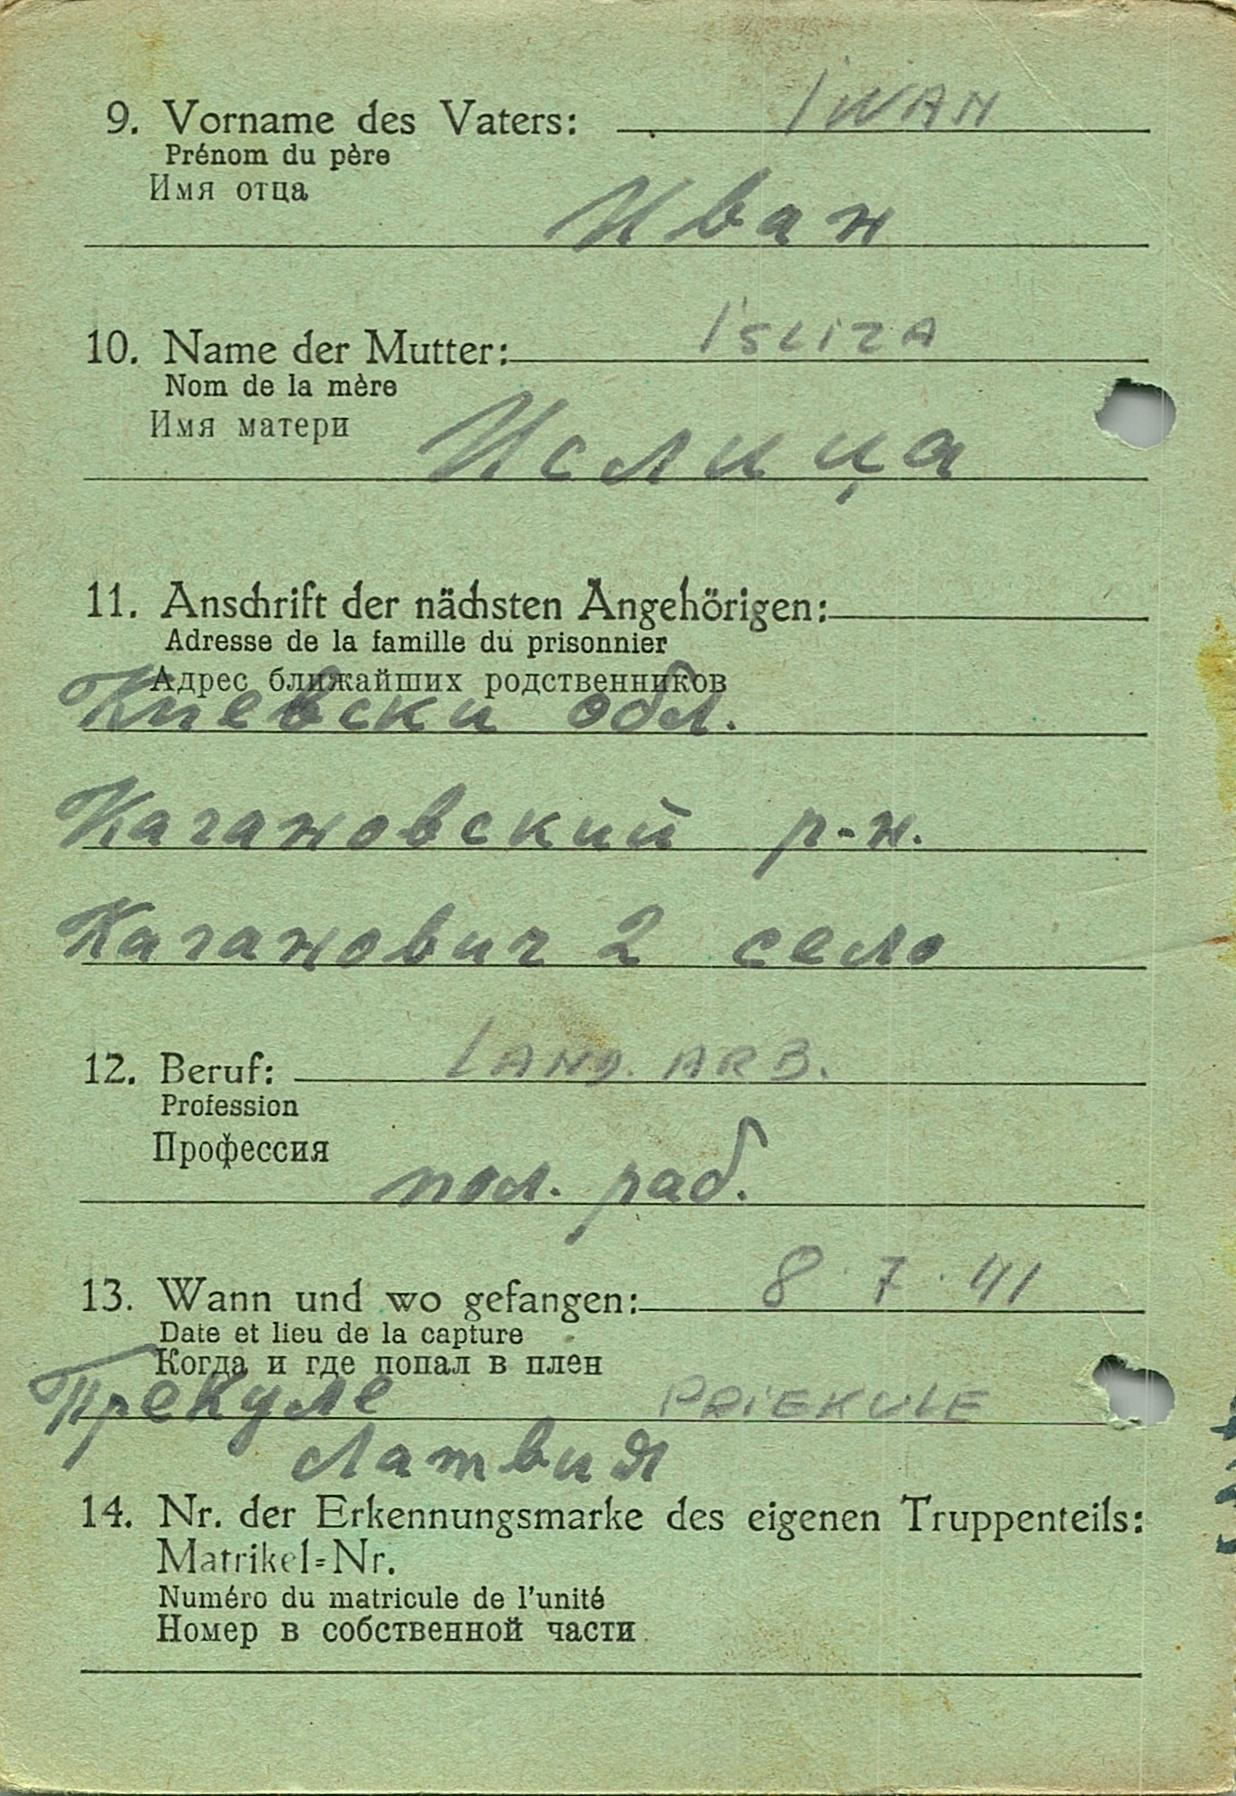 9. Vorname des Vaters: IWAN
Prénom du père
Имя отца
Иван
10. Name der Mutter: ISLIZA
Nom de la mère
Имя матери
Ислица
11. Anschrift der nächsten Angehörigen:
Adresse de la famille du prisonnier
Адрес ближайших родственников
Киевски обл.
Кагановский р-н.
Каганович 2 село
12. Beruf: LAND. ARB.
Profession
Профессия
пол. раб.
13. Wann und wo gefangen: 8.7.41
Date et lieu de la capture
Когда и где попал в плен
Прекуле PRIEKULE
Латвия
14. Nr. der Erkennungsmarke des eigenen Truppenteils:
Matrikel-Nr.
Numéro du matricule de l'unité
Номер в собственной части